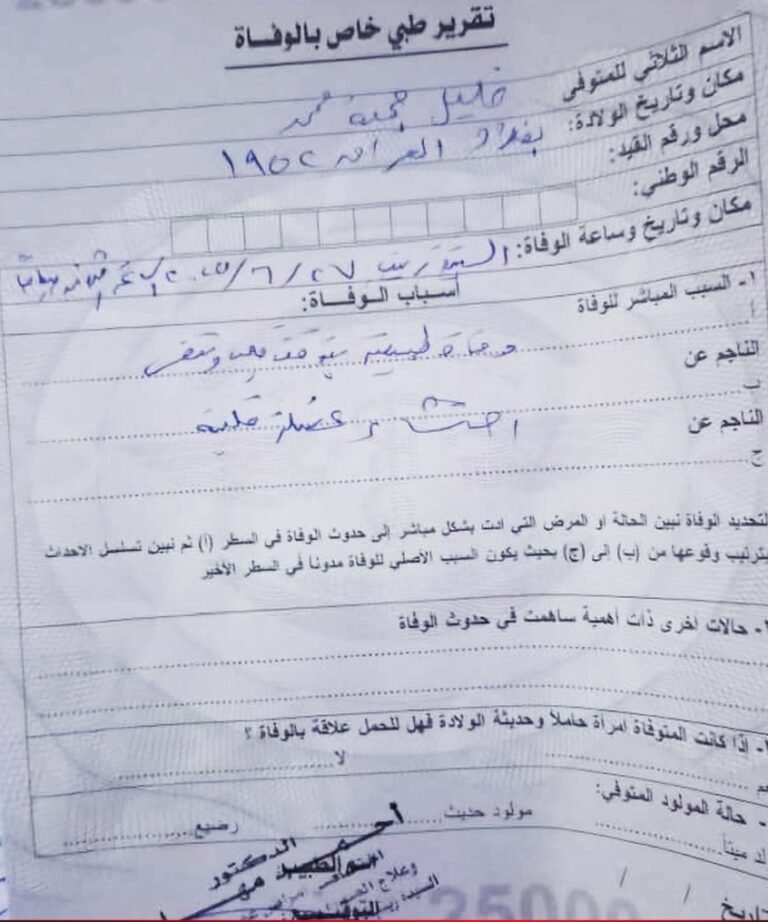 تقرير طبي خاص بالوفاة
الاسم الثلاثي للمتوفى خليل جمعة محمد
مكان وتاريخ الولادة: بغداد العراق ١٩٥٢
محل ورقم القيد:
الرقم الوطني:
مكان وتاريخ وساعة الوفاة: السيدة زينب ٢٠٢٥/٦/٢٧
أسباب الوفاة:
١- السبب المباشر للوفاة
أ
وفاة طبيعية بتوقف قلب وتنفس
الناجم عن
ب
احتشاء عضلة قلبية
الناجم عن
ج
لتحديد الوفاة نبين الحالة او المرض التي ادت بشكل مباشر إلى حدوث الوفاة في السطر (أ) ثم نبين تسلسل الاحداث
بترتيب وقوعها من (ب) إلى (ج) بحيث يكون السبب الأصلي للوفاة مدوناً في السطر الأخير
- حالات أخرى ذات أهمية ساهمت في حدوث الوفاة
- إذا كانت المتوفاة امرأة حاملاً وحديثة الولادة فهل للحمل علاقة بالوفاة ؟
لا
- حالة المولود المتوفي:
مولود حديث رضيع
الدكتور
أحمد
وعلاج
السيدة
التوقيع
/ /
2500